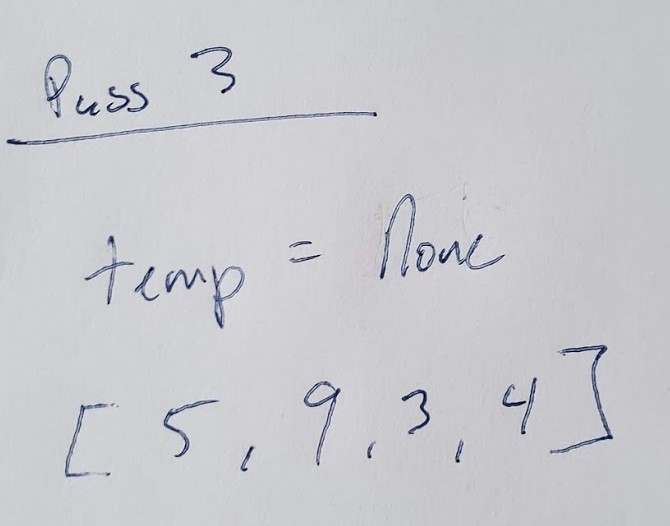 Pass 3
temp = None
[5, 9, 3, 4]